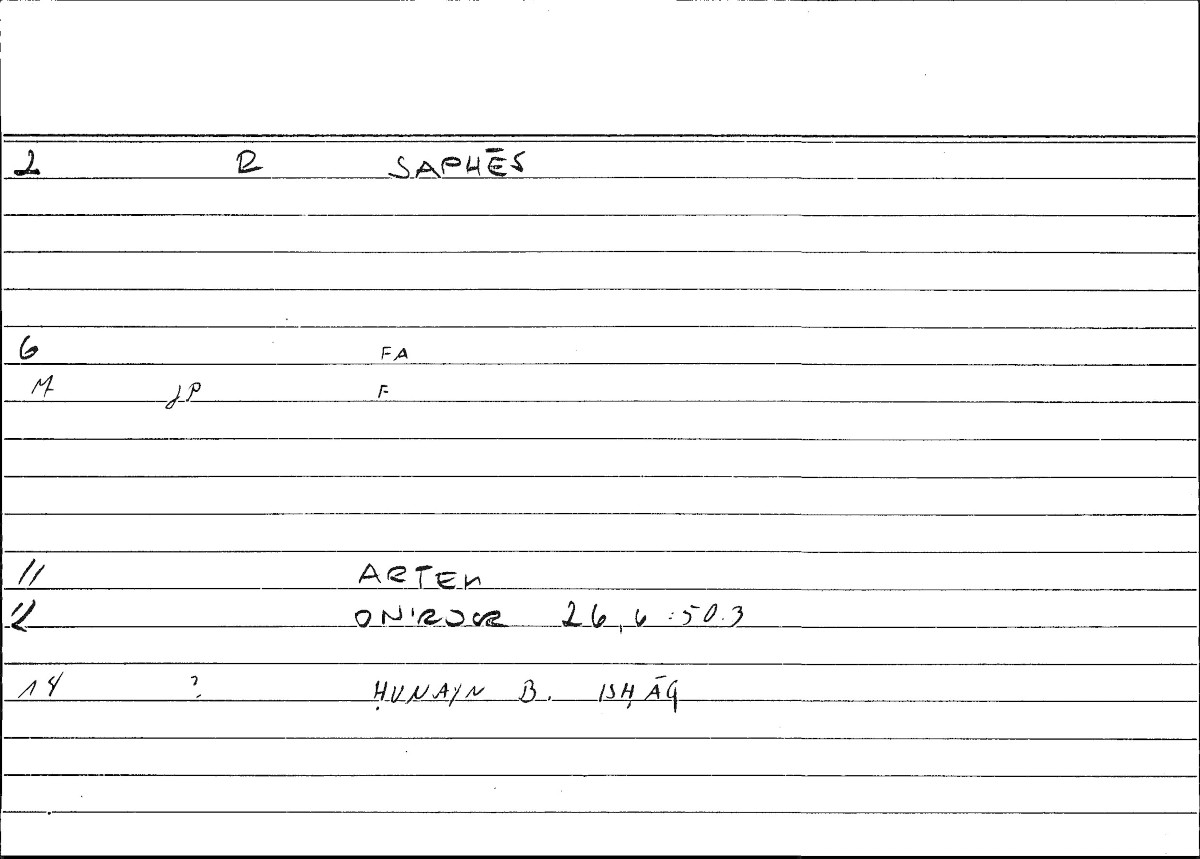 2 R SAPHĒS
6 FA
M JP F
11 ARTEM
12 ONIROCR 26, 6 : 50.3
14 ? ḤUNAYN B. ISḤĀQ